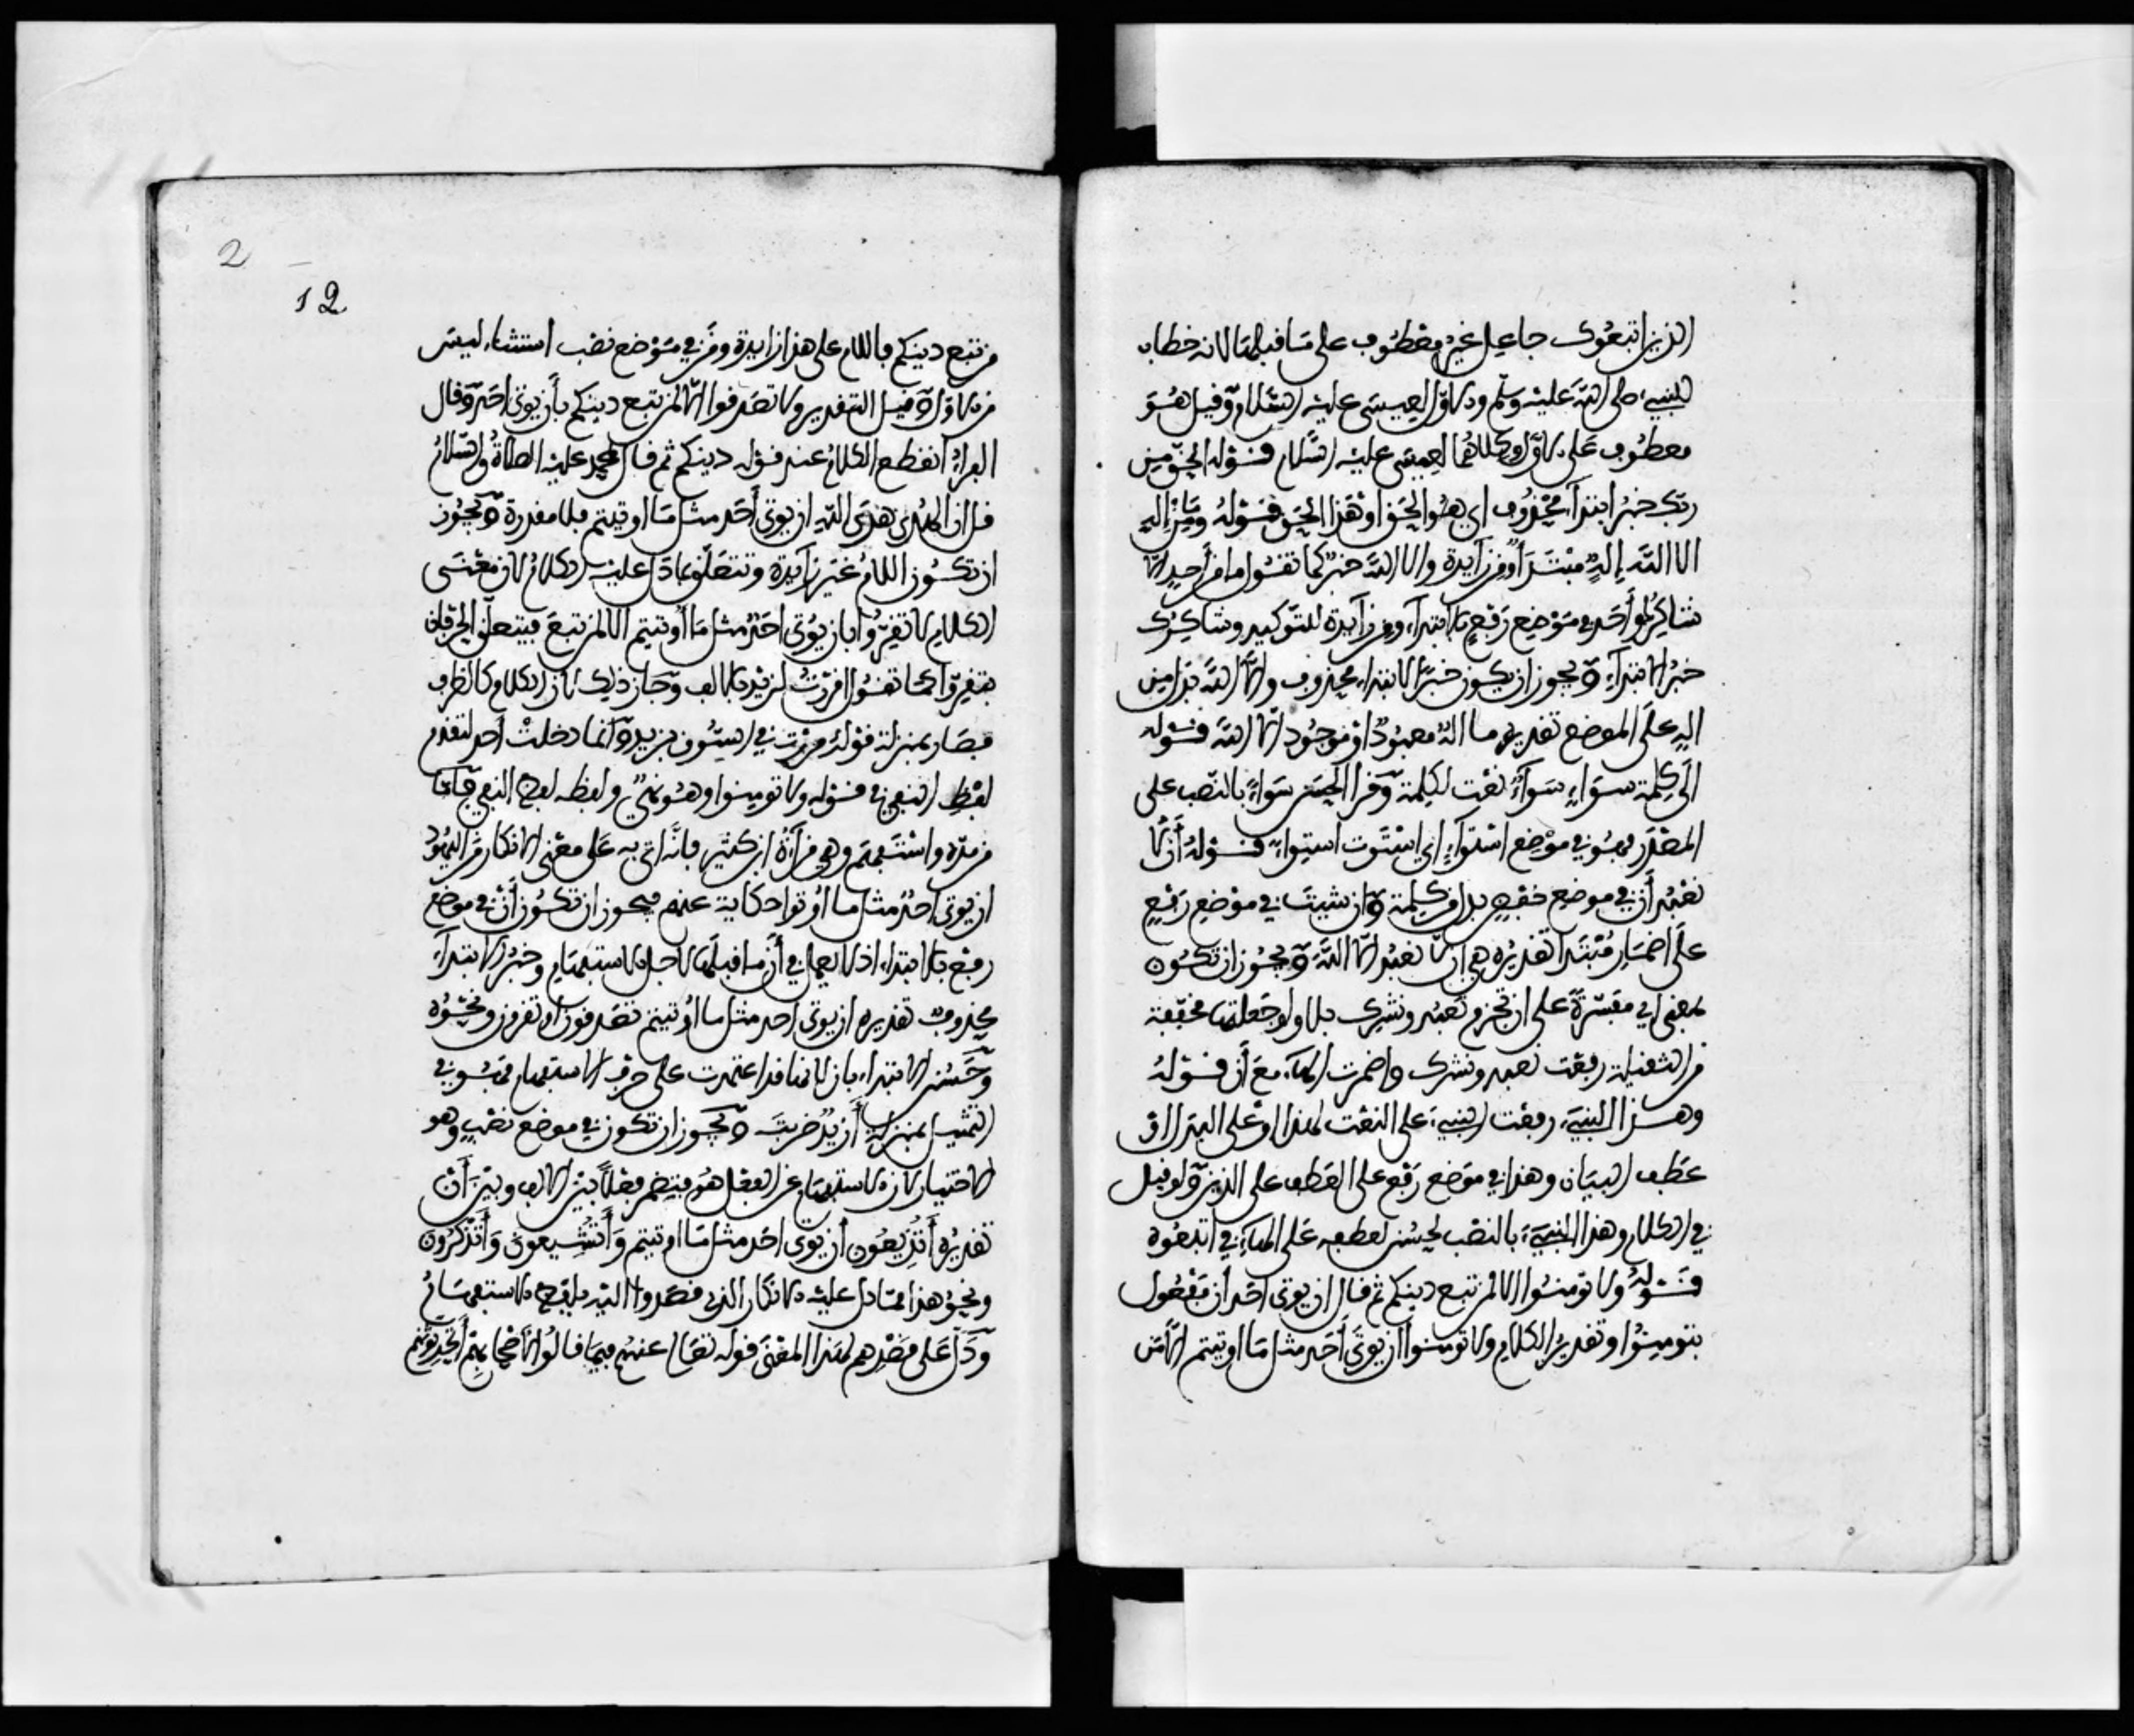 الذين اتبعوك جاعل غير معطوف على ما قبلها لانه خطاب
للنبي صلى الله عليه وسلم والاول لعيسى عليه السلام وقيل هو
معطوف على الاول وكلاهما لعيسى عليه السلام قوله الحق من
ربك خبر ابتدآء محذوف اي هو الحق او هذا الحق قوله وما من اله
الا الله اله مبتدأ ومن زآيدة والا الله خبره كما تقول ما من أحد الا
شاكرك فأحد في موضع رفع بالابتدآء ومن زآيدة للتوكيد وشاكرك
خبر الابتدآء ويجوز ان يكون خبر الابتداء محذوف والا الله بدل من
اله على الموضع تقديره ما اله معبود أو موجود الا الله قوله
الى كلمة سواء سوآء نعت لكلمة وقرا الحسن سوآء بالنصب على
المصدر فهو في موضع استوآء اي استوت استواء قوله أن لا
نعبد أن في موضع خفض بدل من كلمة وان شيت في موضع رفع
على اضمار مبتدا تقديره هي ان لا نعبد الا الله ويجوز ان تكون
بمعنى اي مفسرة على ان تجزم نعبد ونشرك بلا ولو جعلتها مخففة
من الثقيلة رفعت نعبد ونشرك واضمرت الهآء مع أن قوله
وهذا النبي رفعت النبي على النعت لهذا او على البدل او
عطف البيان وهذا في موضع رفع على العطف على الذين ولو قيل
في الكلام وهذا النبي بالنصب لحسن لعطفه على الهآء في اتبعوه
قوله ولا تومنوا الا لمن تبع دينكم ثم قال ان يوتى أحد أن مفعول
بتومنوا وتقدير الكلام ولا تومنوا أن يوتى أحد مثل ما اوتيتم الا من
2
12
من تبع دينكم فاللام على هذا زايدة ومن في موضع نصب استثناء ليس
من الاول وقيل التقدير ولا تصدقوا الا لمن تبع دينكم بأن يوتى احد وقال
الفراء انقطع الكلام عند قوله دينكم ثم قال لمحمد عليه الصلاة والسلام
قل ان الهدى هدى الله ان يوتى أحد مثل ما اوتيتم فلا مقدرة ويجوز
ان تكون اللام غير زآيدة وتتعلق بما دل عليه الكلام لان معنى
الكلام لا تقروا بان يوتى احد مثل ما أوتيتم الا لمن تبع فيتعلق الحرفان
بتقروا كما تقول اقررت لزيد بالالف وجاز ذلك لان الكلام كالظرف
فصار بمنزلة قولك مررت في السوق بزيد وانما دخلت أحد لتقدم
لفظ النفي في قوله ولا تومنوا وهو نهي ولفظه لفظ النفي فأما
من مده واستفهم وهي قرآءة ابن كثير فانه اتى به على معنى الانكار من اليهود
ان يوتى احد مثل ما أوتوا حكاية عنهم فيجوز ان تكون أن في موضع
رفع بالابتداء اذ لا يعمل في أن ما قبلها لاجل الاستفهام وخبر الابتدآء
محذوف تقديره ان يوتى احد مثل ما أوتيتم تصدقون او تقرون ونحوه
وحسن الابتداء بان لانها قد اعتمدت على حرف الاستفهام فهو في
التمثيل بمنزلة أزيد ضربته ويجوز ان تكون في موضع نصب وهو
الاختيار لان الاستفهام عن الفعل هو فيضمر فعلا بين الالف وبين أن
تقديره أتذيعون أن يوتى احد مثل ما اوتيتم وأتشيعون وأتذكرون
ونحو هذا مما دل عليه الانكار الذي قصدوا اليه بلفظ الاستفهام
ودل على قصدهم لهذا المعنى قوله تعالى عنهم فيما قالوا لأصحابهم أتحدثونهم